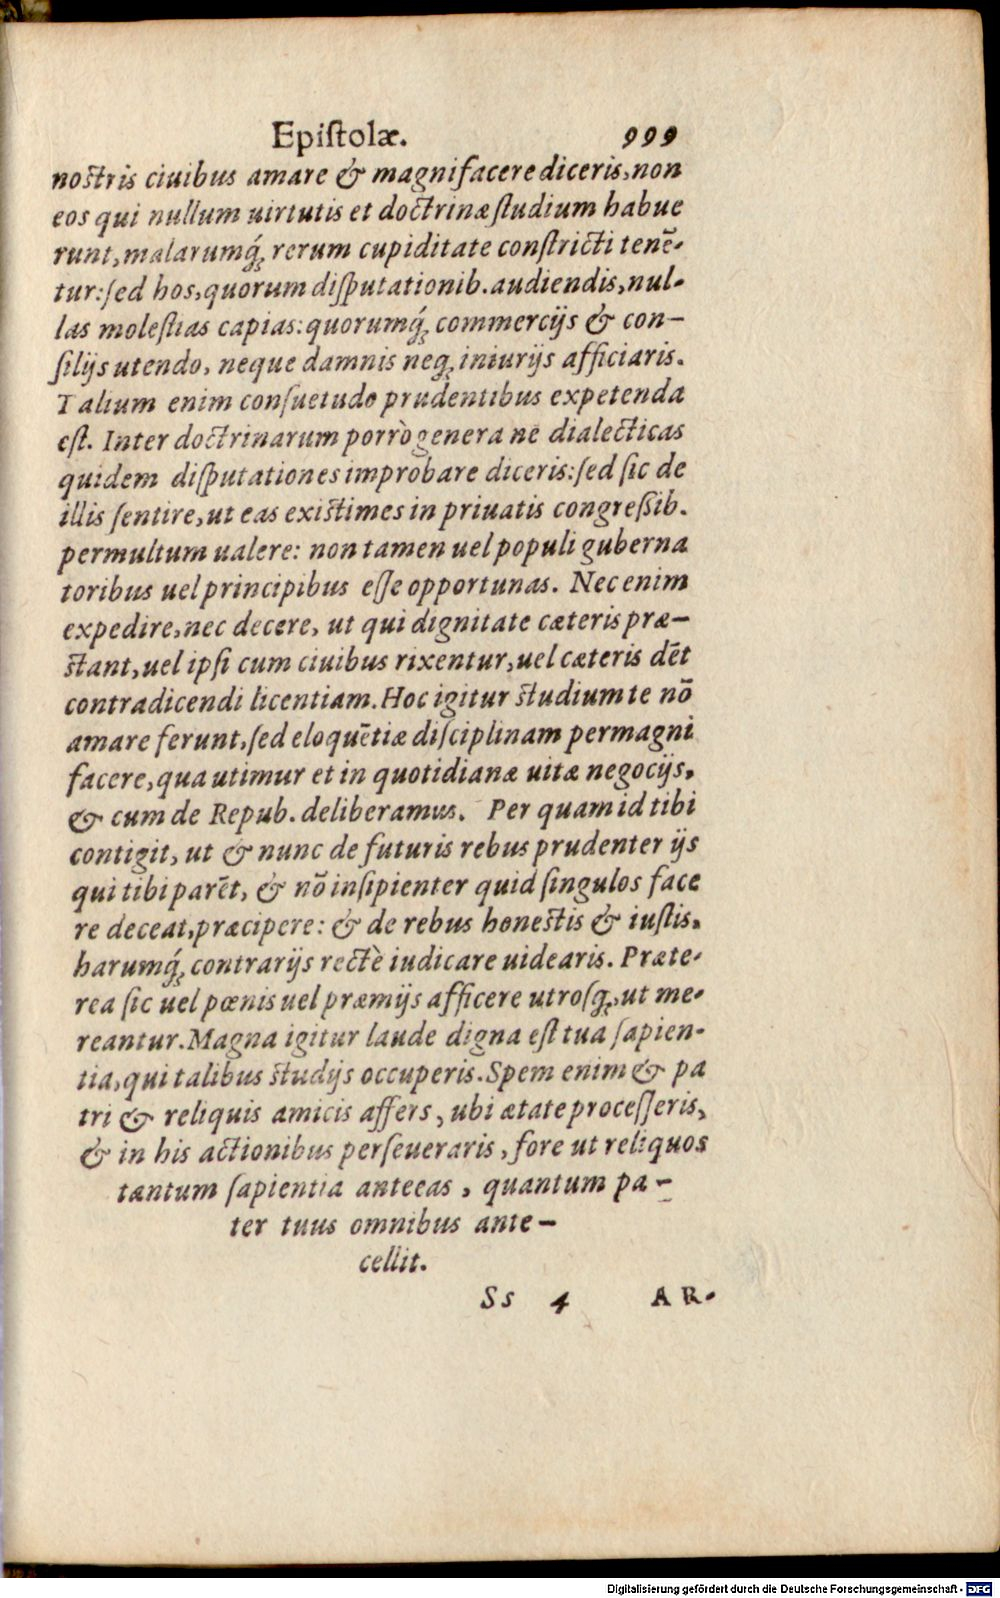 Epiſtolæ. 999
noſtris ciuibus amare & magnifacere diceris, non
eos qui nullum uirtutis et doctrinæ ſtudium habue
runt, malarumq́ꝫ rerum cupiditate conſtricti tenē-
tur: ſed hos, quorum diſputationib. audiendis, nul-
las moleſtias capias: quorumq́ꝫ commercijs & con-
ſilijs utendo, neque damnis neqꝫ iniurijs afficiaris.
Talium enim conſuetudo prudentibus expetenda
eſt. Inter doctrinarum porrò genera ne dialecticas
quidem diſputationes improbare diceris: ſed ſic de
illis ſentire, ut eas exiſtimes in priuatis congreſsib.
permultum ualere: non tamen uel populi guberna
toribus uel principibus eſſe opportunas. Nec enim
expedire, nec decere, ut qui dignitate cæteris præ-
ſtant, uel ipſi cum ciuibus rixentur, uel cæteris dēt
contradicendi licentiam. Hoc igitur ſtudium te nō
amare ferunt, ſed eloquētiæ diſciplinam permagni
facere, qua utimur et in quotidianæ uitæ negocijs,
& cum de Repub. deliberamus. Per quam id tibi
contigit, ut & nunc de futuris rebus prudenter ijs
qui tibi parēt, & nō inſipienter quid ſingulos face
re deceat, præcipere: & de rebus honeſtis & iuſtis,
harumq́ꝫ contrarijs rectè iudicare uidearis. Præte-
rea ſic uel pœnis uel præmijs afficere utroſqꝫ, ut me-
reantur. Magna igitur laude digna eſt tua ſapien-
tia, qui talibus ſtudijs occuperis. Spem enim & pa
tri & reliquis amicis affers, ubi ætate proceſſeris,
& in his actionibus perſeueraris, fore ut reliquos
tantum ſapientia anteeas, quantum pa-
ter tuus omnibus ante-
cellit.
Ss 4 AR-
Digitalisierung gefördert durch die Deutsche Forschungsgemeinschaft - DFG